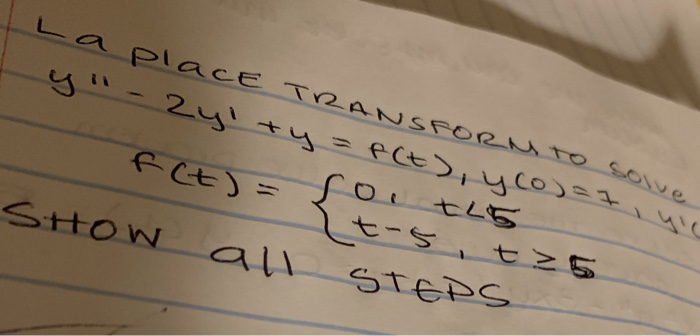 LaplacE TRANSFORM to solve
y'' - 2y' + y = f(t), y(0) = 7, y'(
f(t) = { 0, t<5
t-5, t≥5
SHOW all STEPS